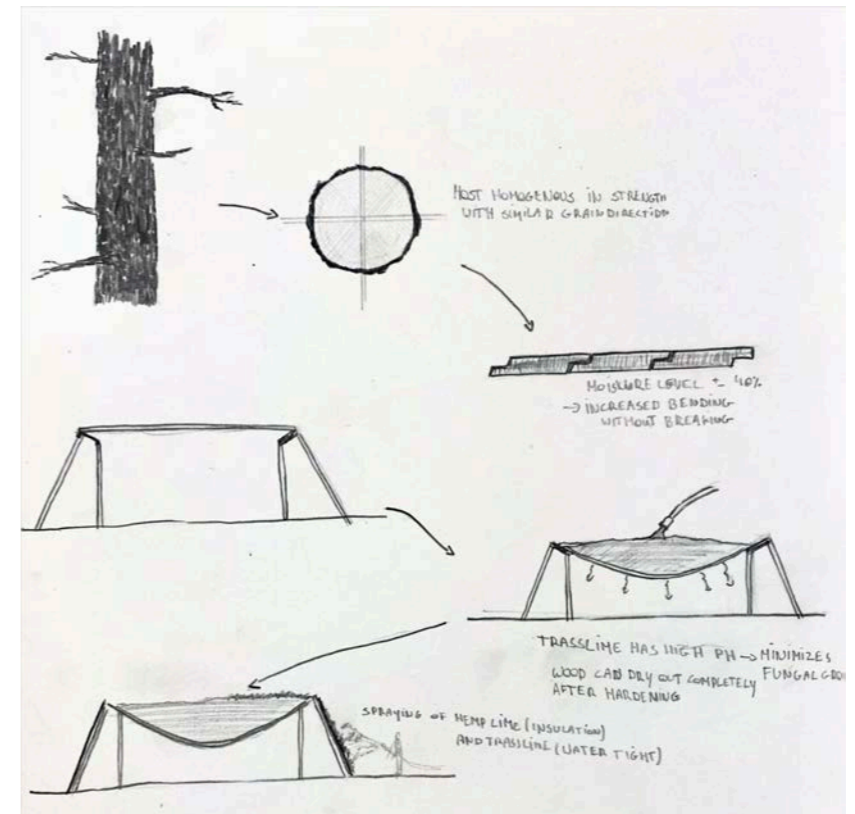 MOST HOMOGENOUS IN STRENGTH
WITH SIMILAR GRAIN DIRECTION
MOISTURE LEVEL +- 40%
-> INCREASED BENDING
WITHOUT BREAKING
TRASSLIME HAS HIGH PH -> MINIMIZES
FUNGAL GRO
WOOD CAN DRY OUT COMPLETELY
AFTER HARDENING
SPRAYING OF HEMP LIME (INSULATION)
AND TRASSLIME (WATER TIGHT)